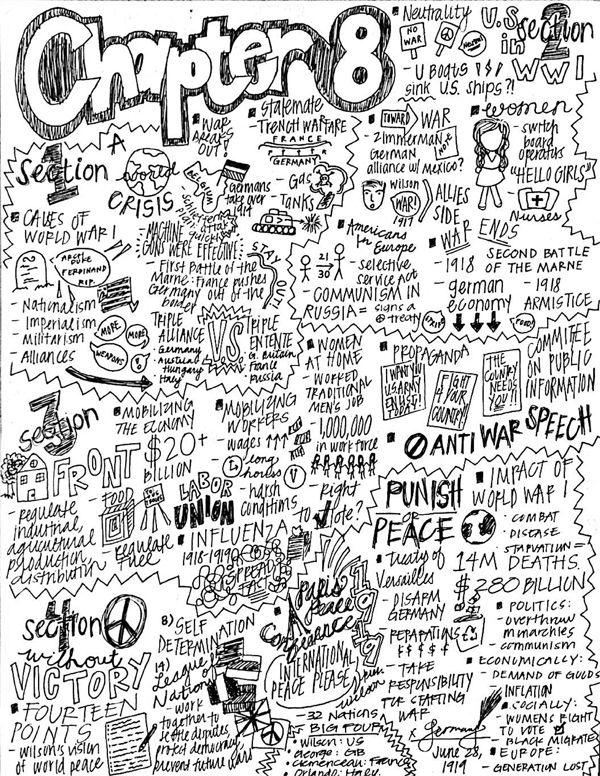 Chapter 8
section 1
A
world
CRISIS
CAUSES OF
WORLD WAR I
ARCHDUKE
FERDINAND
R.I.P.
- Nationalism
- Imperialism
- Militarism
- Alliances
MORE
MORE
WEAPONS
WAR
BREAKS
OUT!
Germans
take over
1914
MACHINE
GUNS WERE EFFECTIVE!
- First Battle of the
Marne: France pushes
Germany out of the
border
TRIPLE
ALLIANCE
- Germany
- Austria
Hungary
- Italy
V.S
TRIPLE
ENTENTE
- G. Britain
- France
- Russia
stalemate
- TRENCH WARFARE
FRANCE
GERMANY
- Gas
- Tanks
section 2
U.S
in
WWI
Neutrality
NO
WAR
- U BOATS
sink U.S. ships?!
TOWARD WAR
- Zimmerman Note
German
alliance w/ Mexico?
Wilson
WAR!
1917
ALLIES
SIDE
Americans
in Europe
21
30
- selective
service Act
- COMMUNISM IN
RUSSIA = signs a
treaty
women
- switch
board
operators
"HELLO GIRLS"
- Nurses
WAR ENDS
- 1918 SECOND BATTLE
OF THE MARNE
- german
economy
- 1918
ARMISTICE
FOOD
section 3
FRONT
- regulate
industrial,
agricultural
production,
distribution
MOBILIZING
THE ECONOMY
$20+
BILLION
- FOOD
- regulate
fuel
MOBILIZING
WORKERS
- wages ↑↑↑
- long
hours
- harsh
conditions
LABOR
UNION
INFLUENZA
1918-1919
SPREADS
FAST
WOMEN
AT HOME
- WORKED
TRADITIONAL
MEN'S JOB
- 1,000,000
in workforce
- right
to vote?
PROPAGANDA
I WANT YOU
U.S ARMY
ENLIST
TODAY!
FIGHT
4 YOUR
COUNTRY!
THE
COUNTRY
NEEDS
YOU!!
COMMITTEE
ON PUBLIC
INFORMATION
ANTI WAR SPEECH
section 4
without
VICTORY
FOURTEEN
POINTS
- Wilson's vision
of world peace
8) SELF
DETERMINATION
14)
League of
Nations
- work
together to
settle disputes,
protect democracy,
prevent future wars
Paris
Peace
Conference
1919
INTERNATIONAL
PEACE PLEASE!
pres.
wilson
- 32 Nations
- BIG FOUR
Wilson: US
George: GB
Clemenceau: France
Orlando: Italy
PUNISH
OR
PEACE
Treaty of
Versailles
- DISARM
GERMANY
- REPARATIONS
$ $ $ $ $
- TAKE
RESPONSIBILITY
FOR STARTING
WAR
x Germany
June 28,
1919
IMPACT OF
WORLD WAR I
• COMBAT
• DISEASE
• STARVATION =
14M DEATHS
$280 BILLION
POLITICS:
- overthrow
monarchies
- communism
ECONOMICALLY:
- DEMAND OF GOODS
- INFLATION
SOCIALLY:
- WOMENS RIGHT
TO VOTE
- BLACK MIGRATE
EUROPE:
- GENERATION LOST